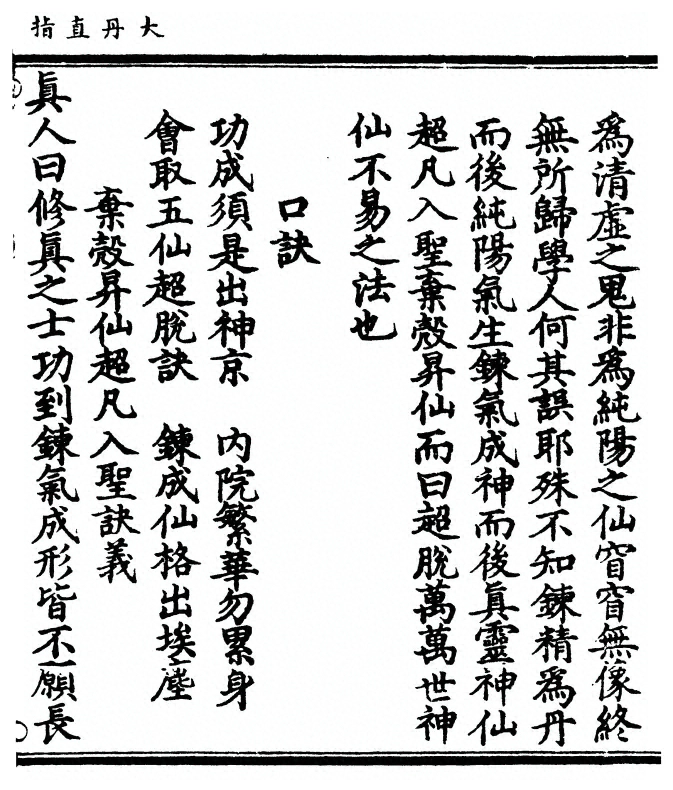 大丹直指
爲清虛之鬼非爲純陽之仙窅窅無像終
無所歸學人何其誤耶殊不知鍊精爲丹
而後純陽氣生鍊氣成神而後眞靈神仙
超凡入聖棄殼昇仙而曰超脫萬萬世神
仙不易之法也
口訣
功成須是出神京　內院繁華勿累身
會取五仙超脫訣　鍊成仙格出埃塵
棄殼昇仙超凡入聖訣義
眞人曰修眞之士功到鍊氣成形皆不願長